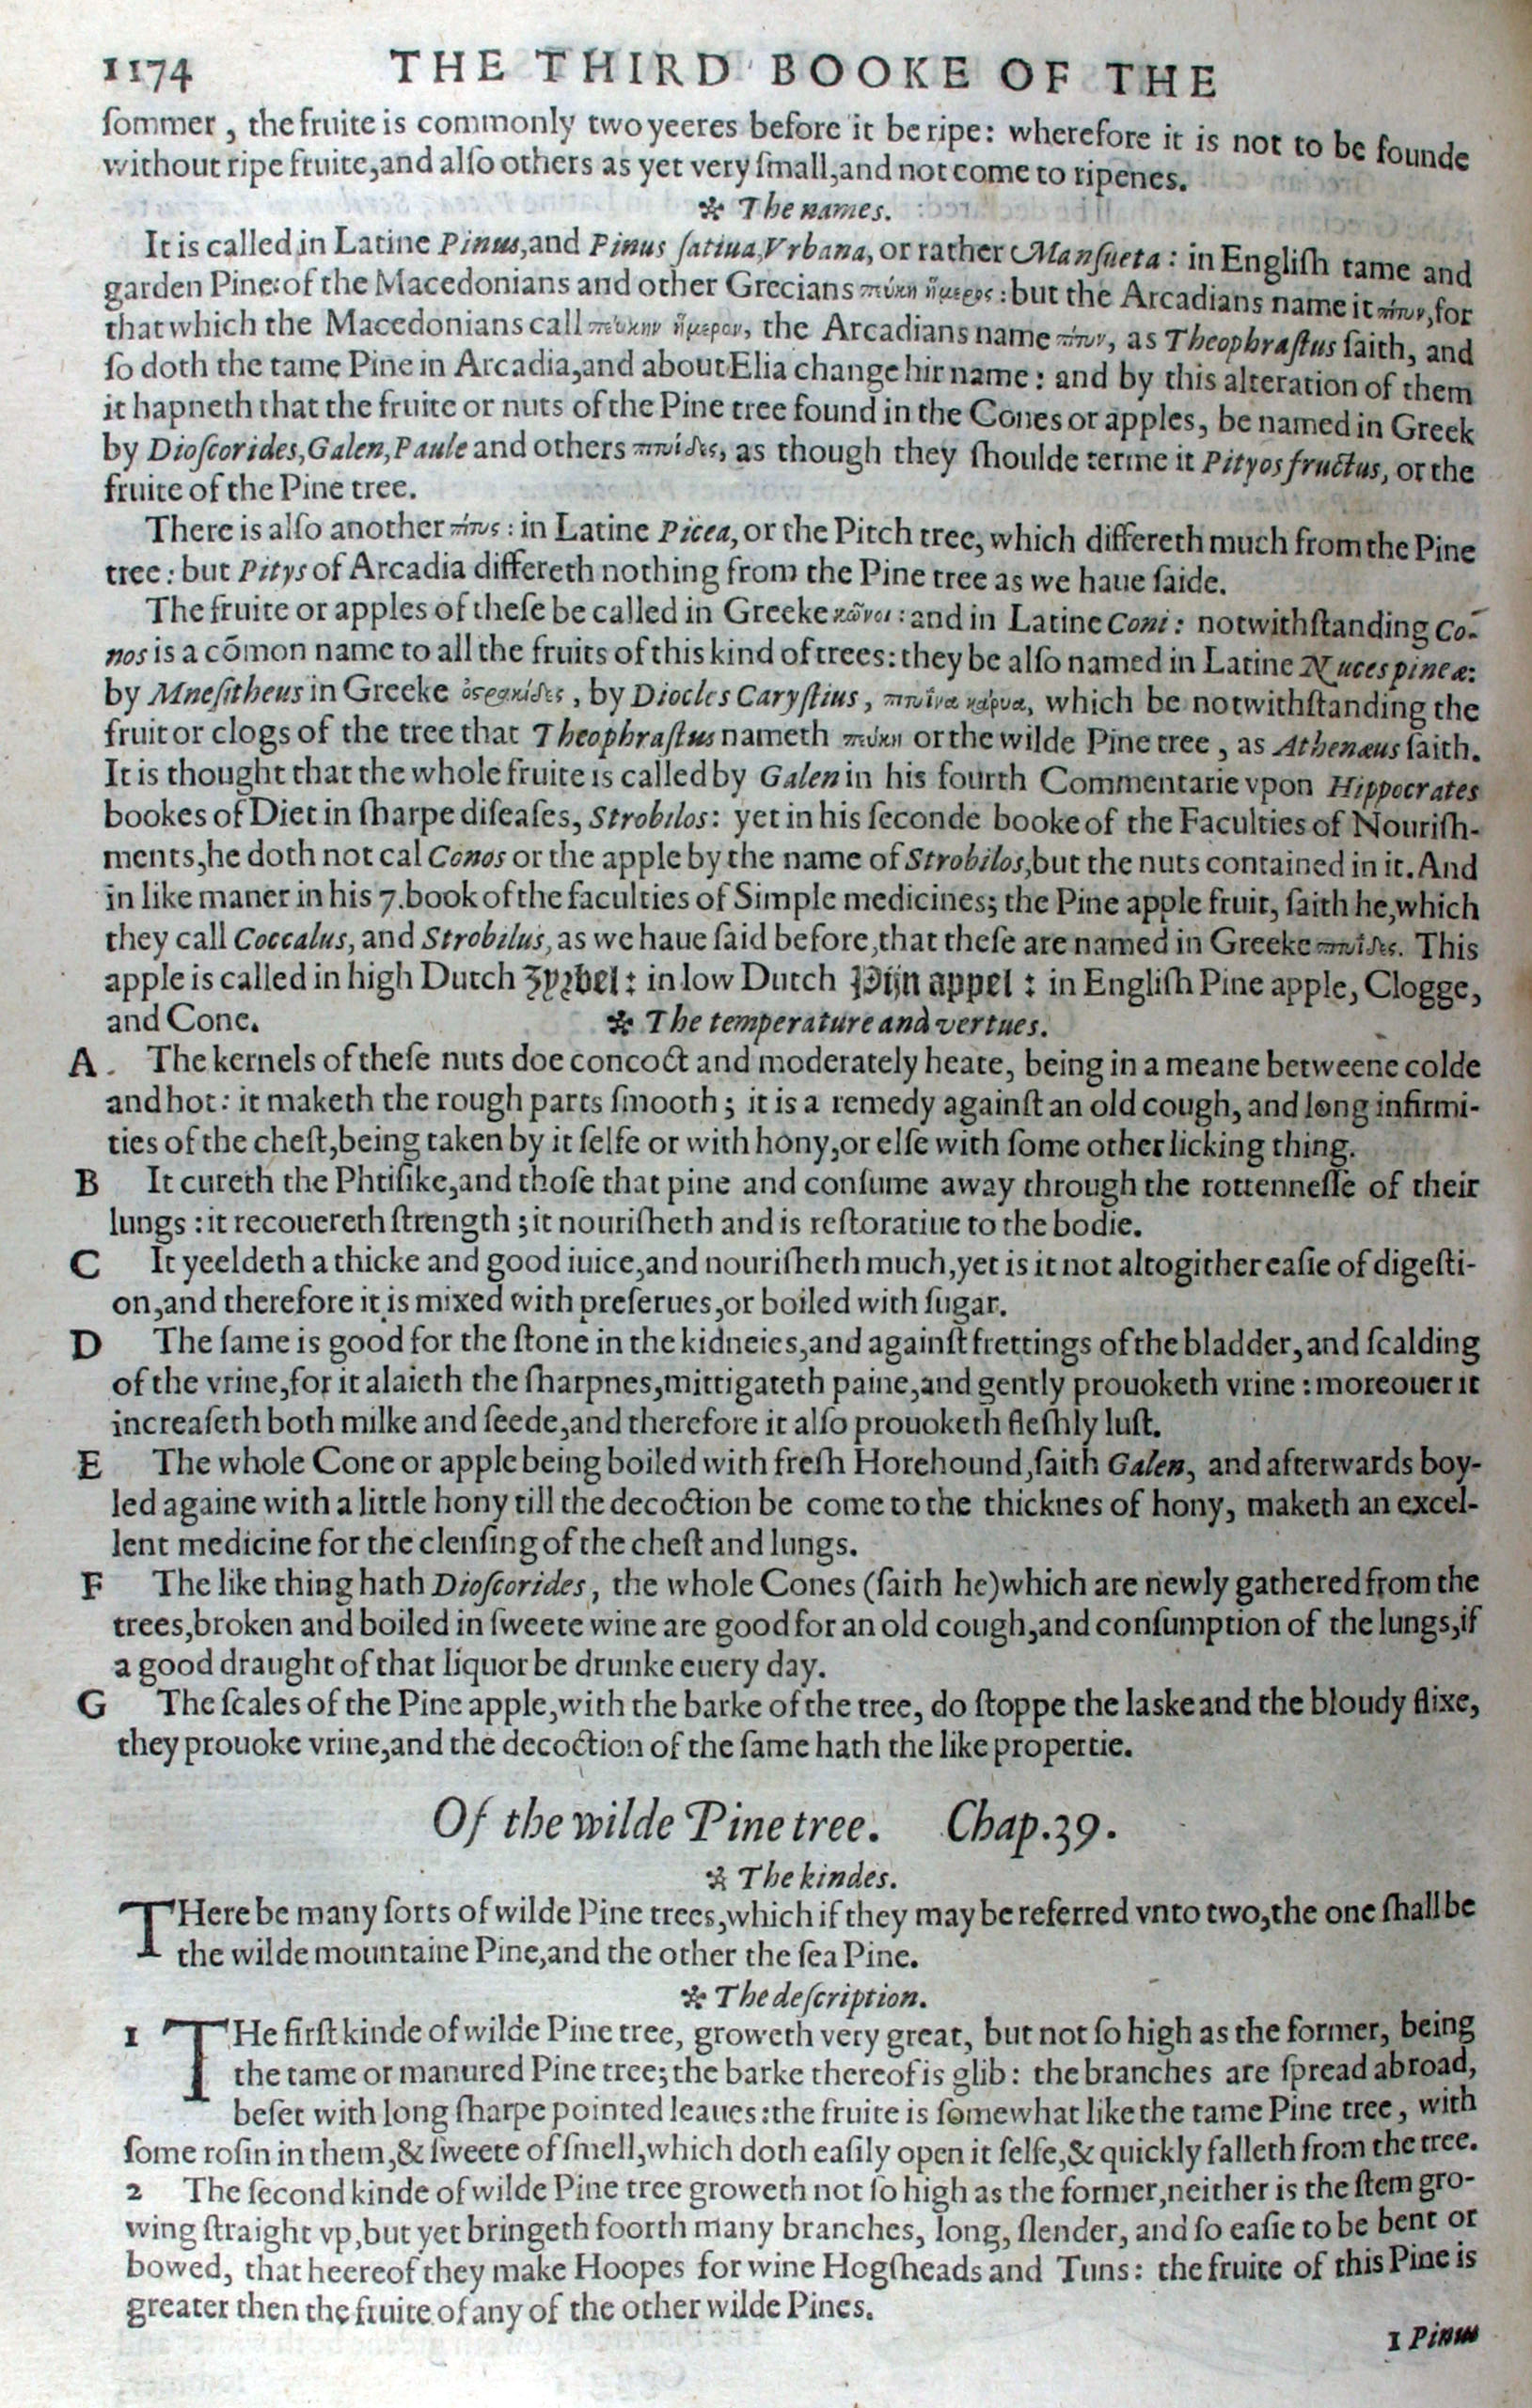 1174 THE THIRD BOOKE OF THE
ſommer, the fruite is commonly two yeeres before it be ripe: wherefore it is not to be founde
without ripe fruite, and alſo others as yet very ſmall, and not come to ripenes.
✲ The names.
It is called in Latine Pinus, and Pinus ſatiua, Vrbana, or rather Manſueta: in Engliſh tame and
garden Pine: of the Macedonians and other Grecians πεύκη ἥμερος: but the Arcadians name it πίτυν, for
that which the Macedonians call πεύκην ἥμερον, the Arcadians name πίτυν, as Theophraſtus ſaith, and
ſo doth the tame Pine in Arcadia, and about Elia change hir name: and by this alteration of them
it hapneth that the fruite or nuts of the Pine tree found in the Cones or apples, be named in Greek
by Dioſcorides, Galen, Paule and others πιτυίδες, as though they ſhoulde terme it Pityos fructus, or the
fruite of the Pine tree.
There is alſo another πίτυς: in Latine Picea, or the Pitch tree, which differeth much from the Pine
tree: but Pitys of Arcadia differeth nothing from the Pine tree as we haue ſaide.
The fruite or apples of theſe be called in Greeke κῶνοι: and in Latine Coni: notwithſtanding Co-
nos is a cõmon name to all the fruits of this kind of trees: they be alſo named in Latine Nuces pineæ:
by Mneſitheus in Greeke ὀστρακίδες, by Diocles Caryſtius, πιτυΐνα κάρυα, which be notwithſtanding the
fruit or clogs of the tree that Theophraſtus nameth πεύκη or the wilde Pine tree, as Athenæus ſaith.
It is thought that the whole fruite is called by Galen in his fourth Commentarie vpon Hippocrates
bookes of Diet in ſharpe diſeaſes, Strobilos: yet in his ſeconde booke of the Faculties of Nouriſh-
ments, he doth not cal Conos or the apple by the name of Strobilos, but the nuts contained in it. And
in like maner in his 7. book of the faculties of Simple medicines; the Pine apple fruit, ſaith he, which
they call Coccalus, and Strobilus, as we haue ſaid before, that theſe are named in Greeke πιτυΐδες. This
apple is called in high Dutch Zyrbel: in low Dutch Pijn appel: in Engliſh Pine apple, Clogge,
and Cone. ✲ The temperature and vertues.
A The kernels of theſe nuts doe concoct and moderately heate, being in a meane betweene colde
and hot: it maketh the rough parts ſmooth; it is a remedy againſt an old cough, and long infirmi-
ties of the cheſt, being taken by it ſelfe or with hony, or elſe with ſome other licking thing.
B It cureth the Phtiſike, and thoſe that pine and conſume away through the rottenneſſe of their
lungs: it recouereth ſtrength; it nouriſheth and is reſtoratiue to the bodie.
C It yeeldeth a thicke and good iuice, and nouriſheth much, yet is it not altogither eaſie of digeſti-
on, and therefore it is mixed with preſerues, or boiled with ſugar.
D The ſame is good for the ſtone in the kidneies, and againſt frettings of the bladder, and ſcalding
of the vrine, for it alaieth the ſharpnes, mittigateth paine, and gently prouoketh vrine: moreouer it
increaſeth both milke and ſeede, and therefore it alſo prouoketh fleſhly luſt.
E The whole Cone or apple being boiled with freſh Horehound, ſaith Galen, and afterwards boy-
led againe with a little hony till the decoction be come to the thicknes of hony, maketh an excel-
lent medicine for the clenſing of the cheſt and lungs.
F The like thing hath Dioſcorides, the whole Cones (ſaith he) which are newly gathered from the
trees, broken and boiled in ſweete wine are good for an old cough, and conſumption of the lungs, if
a good draught of that liquor be drunke euery day.
G The ſcales of the Pine apple, with the barke of the tree, do ſtoppe the laske and the bloudy flixe,
they prouoke vrine, and the decoction of the ſame hath the like propertie.
Of the wilde Pine tree. Chap. 39.
✲ The kindes.
THere be many ſorts of wilde Pine trees, which if they may be referred vnto two, the one ſhall be
the wilde mountaine Pine, and the other the ſea Pine.
✲ The deſcription.
1 THe firſt kinde of wilde Pine tree, groweth very great, but not ſo high as the former, being
the tame or manured Pine tree; the barke thereof is glib: the branches are ſpread abroad,
beſet with long ſharpe pointed leaues: the fruite is ſomewhat like the tame Pine tree, with
ſome roſin in them, & ſweete of ſmell, which doth eaſily open it ſelfe, & quickly falleth from the tree.
2 The ſecond kinde of wilde Pine tree groweth not ſo high as the former, neither is the ſtem gro-
wing ſtraight vp, but yet bringeth foorth many branches, long, ſlender, and ſo eaſie to be bent or
bowed, that heereof they make Hoopes for wine Hogſheads and Tuns: the fruite of this Pine is
greater then the fruite of any of the other wilde Pines.
1 Pinus